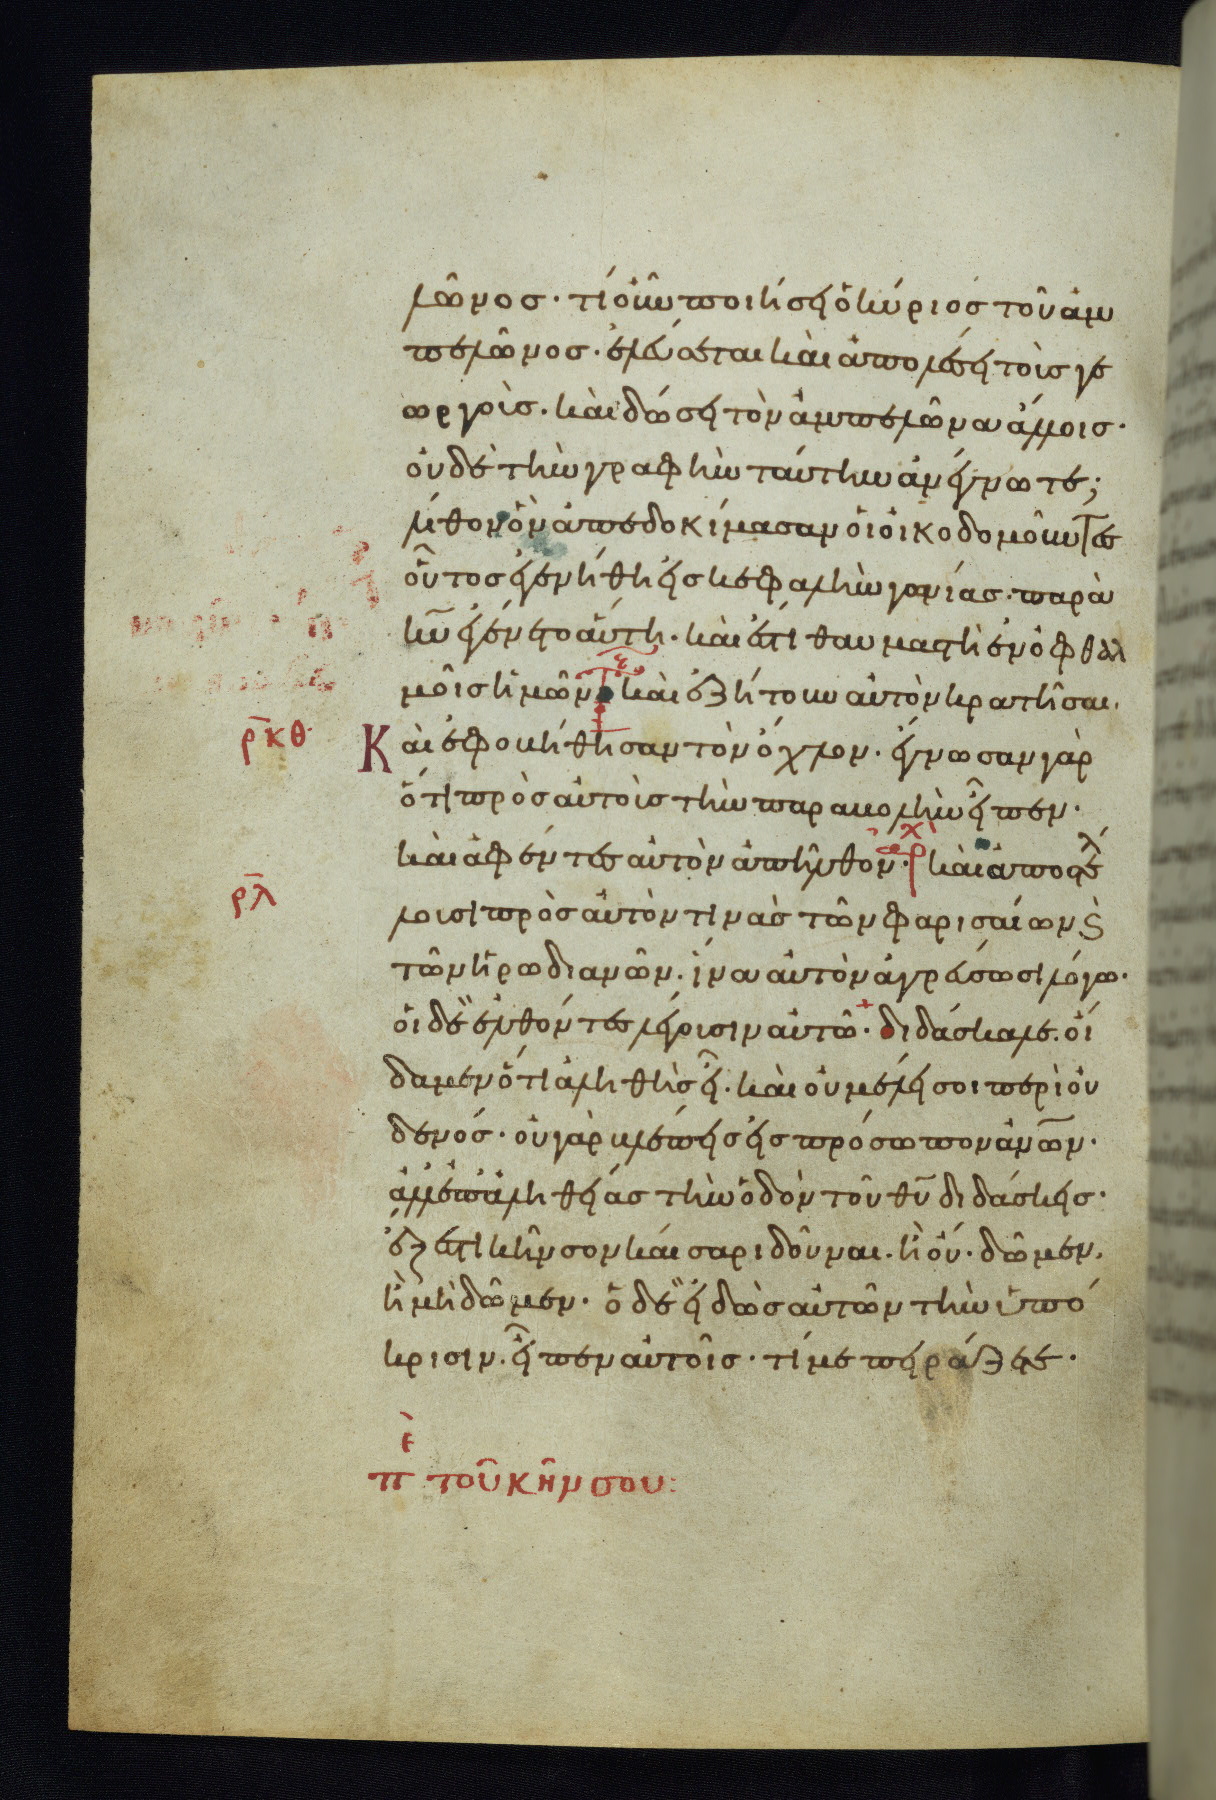 λῶνος · τί οὖν ποιήσει ὁ κύριος τοῦ ἀμ
πελῶνος · ἐλεύσεται καὶ ἀπολέσει τοὺς γε
ωργοὺς · καὶ δώσει τὸν ἀμπελῶνα ἄλλοις ·
οὐδὲ τὴν γραφὴν ταύτην ἀνέγνωτε ;
λίθον ὃν ἀπεδοκίμασαν οἱ οἰκοδομοῦντες
οὗτος ἐγενήθη εἰς κεφαλὴν γωνίας · παρὰ
κυ̅ ἐγένετο αὕτη · καὶ ἔστι θαυμαστὴ ἐν ὀφθαλ
μοῖς ἡμῶν · καὶ ἐζήτουν αὐτὸν κρατῆσαι ·
ρ̅κ̅θ̅ Καὶ ἐφοβήθησαν τὸν ὄχλον · ἔγνωσαν γὰρ
ὅτι πρὸς αὐτοὺς τὴν παραβολὴν εἶπεν ·
καὶ ἀφέντες αὐτὸν ἀπῆλθον · αρχ καὶ ἀποστέλ
ρ̅λ̅ λουσι πρὸς αὐτὸν τινὰς τῶν φαρισαίων ϗ
τῶν ἡρωδιανῶν · ἵνα αὐτὸν ἀγρεύσωσι λόγω ·
οἱ δὲ ἐλθόντες λέγουσιν αὐτῶ · διδάσκαλε · οἴ
δαμεν ὅτι ἀληθὴς εἶ · καὶ οὐ μέλει σοι περὶ οὐ
δενός · οὐ γὰρ βλέπεις εἰς πρόσωπον ἀν̅ω̅ν ·
ἀλλ' ἐπ' ἀληθείας τὴν ὁδὸν τοῦ θυ̅ διδάσκεις ·
ἔξεστι κῆνσον καίσαρι δοῦναι · ἢ οὔ · δῶμεν ·
ἢ μὴ δῶμεν · ὁ δὲ εἰδὼς αὐτῶν τὴν ὑπό
κρισιν · εἶπεν αὐτοῖς · τί με πειράζετε ·
πε τοῦ κῆνσου :